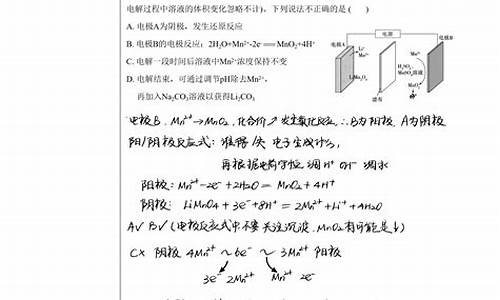 电解过程中溶液的体积变化忽略不计)，下列说法不正确的是 (    )
A. 电极A为阴极，发生还原反应
B. 电极B的电极反应：2H₂O+Mn²⁺-2e⁻══MnO₂+4H⁺
C. 电解一段时间后溶液中Mn²⁺浓度保持不变
D. 电解结束，可通过调节pH除去Mn²⁺，
再加入Na₂CO₃溶液以获得Li₂CO₃
电源
电极A
电极B
Li⁺
Mn²⁺
Mn²⁺
H₂SO₄-
MnSO₄溶液
MnO₂
滤布
电极B. Mn²⁺→MnO₂, 化合价↗ 发生氧化反应, ∴B为阳极. A为阴极
阳/阴极反应式：谁得/失 电子生成什么,
再根据电荷守恒 调H⁺ OH⁻ 调水
阳极: Mn²⁺-2e⁻+2H₂O = MnO₂+4H⁺
阴极: LiMnO₄+3e⁻+8H⁺ = 2Mn²⁺+Li⁺+4H₂O
A√ B√ (电极反应式中不要关注沉淀. MnO₂有可能是↓)
C× 阴极 4Mn²⁺ ~ 6e⁻ ~ 3Mn²⁺ 阳极
3e⁻ 2Mn²⁺ Mn²⁺ 2e⁻